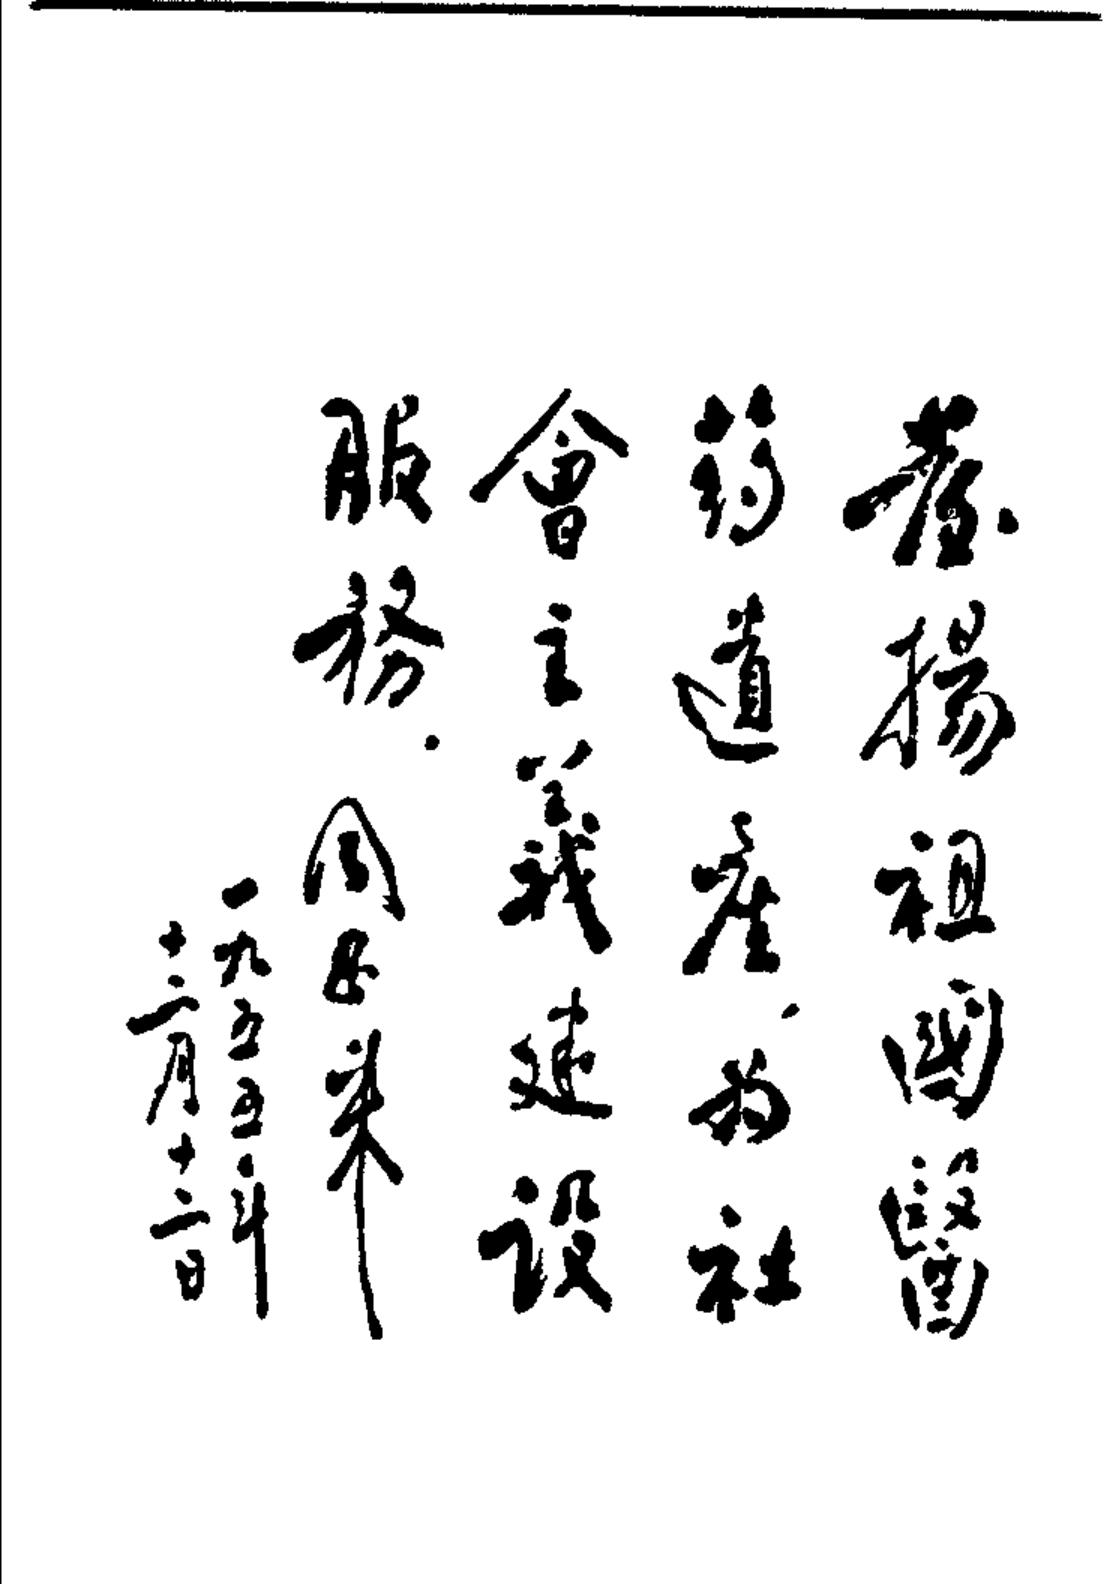 發揚祖國醫
药遺產，为社
會主義建設
服務．周恩来
一九五五年
十二月十二日